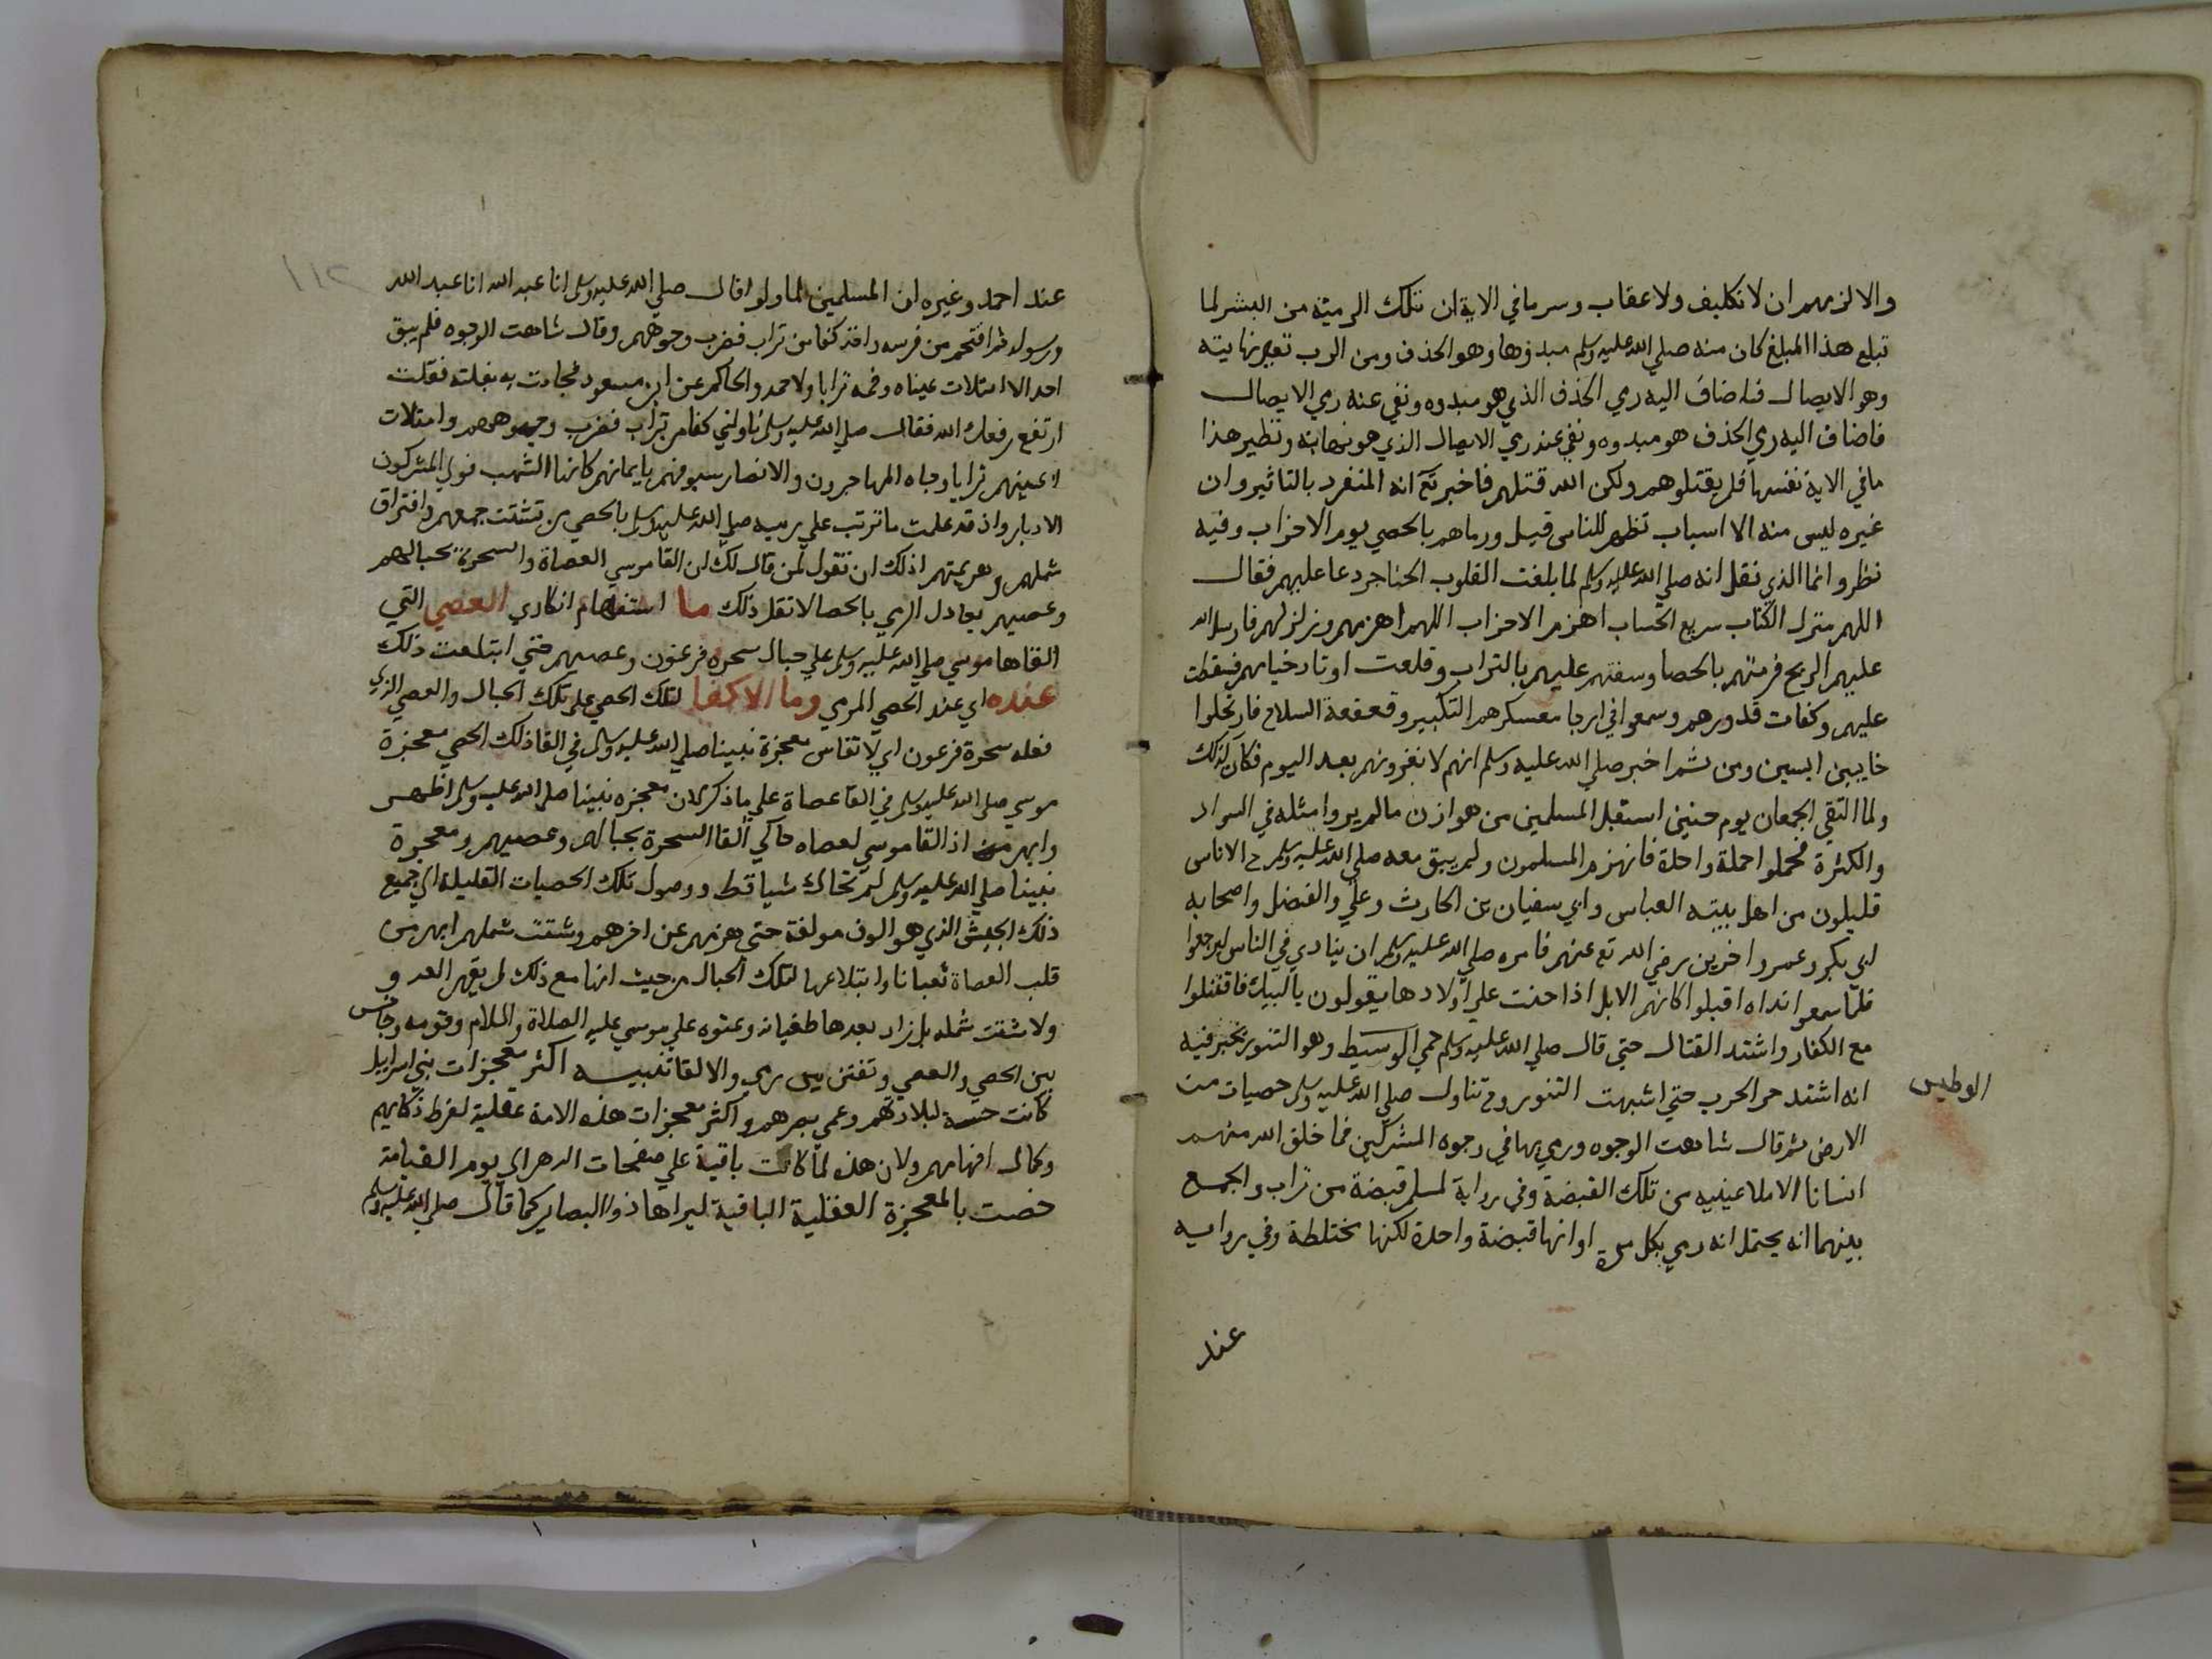 والا لزمهم ان لا تكليف ولا عقاب وسر ما في الاية ان تلك الرمية من البشر لما
تبلغ هذا المبلغ كان منه صلي الله عليه وسلم مبدؤها وهو الحذف ومن الرب تعالي نهايته
وهو الايصال فاضاف اليه رمي الحذف الذي هو مبدوه ونفي عنه رمي الايصال
فاضاف اليه رمي الحذف هو مبدوه ونفي عنه رمي الايصال الذي هو نهايته ونظير هذا
ما في الاية نفسها فلم يقتلوهم ولكن الله قتلهم فاخبر تع انه المنفرد بالتاثير وان
غيره ليس منه الا اسباب تظهر للناس قيل ورماهم بالحصي يوم الاحزاب وفيه
نظر وانما الذي نقل انه صلي الله عليه وسلم لما بلغت القلوب الحناجر دعا عليهم فقال
اللهم منزل الكتاب سريع الحساب اهزم الاحزاب اللهم اهزمهم وزلزلهم فارسل الله
عليهم الريح فرمتهم بالحصا وسفتهم عليهم بالتراب وقلعت اوتاد خيامهم فسقطت
عليهم وكفات قدورهم وسمعوا في ارجا معسكرهم التكبير وقعقعة السلاح فارتحلوا
خايبين ايسين ومن ثم اخبر صلي الله عليه وسلم انهم لا نغزونهم بعد اليوم فكان كذلك
ولما التقي الجمعان يوم حنين استقبل المسلمين من هوازن ما لم يروا مثله في السواد
والكثرة فحملوا حملة واحدة فانهزم المسلمون ولم يبق معه صلي الله عليه وسلم ح الا ناس
قليلون من اهل بيته العباس وابي سفيان بن الحارث وعلي والفضل واصحابه
ابي بكر وعمر واخرين رضي الله تع عنهم فامره صلي الله عليه وسلم ان ينادي في الناس ليرجعوا
فلما سمعوا نداه اقبلوا كانهم الابل اذا حنت علي اولادها يقولون يا لبيك فاقتتلوا
مع الكفار واشتد القتال حتي قال صلي الله عليه وسلم حمي الوسيط وهو التنور يخبز فيه
الوطيس
انه اشتد حر الحرب حتي اشبهت التنور وح تناول صلي الله عليه وسلم حصيات من
الارض ثم قال شاهت الوجوه ورمي بها في وجوه المشركين فما خلق الله منهم
انسانا الا ملا عينيه من تلك القبضة وفي رواية لمسلم قبضة من تراب والجمع
بينهما انه يحتمل انه رمي بكل مرة او انها قبضة واحدة لكنها مختلطة وفي رواية
عند
١١٢
عند احمد وغيره ان المسلمين لما ولوا قال صلي الله عليه وسلم انا عبد الله انا عبد الله
ورسوله ثم اقتحم من فرسه واخذ كفا من تراب فضرب وجوههم وقال شاهت الوجوه فلم يبق
احد الا امتلات عيناه وفمه ترابا ولاحمد والحاكم عن ابن مسعود فحادت به بغلته فقلت
ارتفع رفعك الله فقال صلي الله عليه وسلم ناولني كفا من تراب فضرب وجوههم وامتلات
اعينهم ترابا وجاه المهاجرون والانصار سيوفهم بايمانهم كانها الشهب فولي المشركون
الادبار واذ قد علمت ما ترتب علي رميه صلي الله عليه وسلم بالحصي من تشتت جمعهم وافتراق
شملهم وهزيمتهم اذلك ان تقول لمن قال لك ان القا موسي العصاة والسحرة بحبالهم
وعصيهم يعادل الرمي بالحصا لا تقل ذلك ما استفهام انكاري العصي التي
القاها موسي صلي الله عليه وسلم علي حبال سحرة فرعون وعصيهم حتي ابتلعت ذلك
عنده اي عند الحصي المرمي وما الالقا لتلك الحصي علي تلك الحبال والعصي الذي
فعله سحرة فرعون اي لا تقاس معجزة نبينا صلي الله عليه وسلم في القا ذلك الحصي معجزة
موسي صلي الله عليه وسلم في القا عصاة علي ما ذكر لان معجزه نبينا صلي الله عليه وسلم اظهر
وابهر من اذ القا موسي لعصاه حاكي القا السحرة بحبالهم وعصيهم ومعجزة
نبينا صلي الله عليه وسلم لم تحاك شيا قط ووصول تلك الحصيات القليلة الي جميع
ذلك الجيش الذي هو الوف مولفة حتي هزمهم عن اخرهم وشتت شملهم ابهر من
قلب العصاة ثعبانا وابتلاعها لتلك الحبال من حيث انها مع ذلك لم يقهر العدو
ولا شتت شمله بل زاد بعدها طغيانه وعتوه علي موسي عليه الصلاة والسلام وقومه وجانس
بين الحصي والعصي وتفنن بين رمي والالقا تنبيه اكثر معجزات بني اسراييل
كانت حسة لبلادتهم وعمي بصرهم واكثر معجزات هذه الامة عقلية لفرط ذكايهم
وكمال افهامهم ولان هذه لما كانت باقية علي صفحات الدهر الي يوم القيامة
خصت بالمعجزة العقلية الباقية ليراها ذوا البصاير كما قال صلي الله عليه وسلم